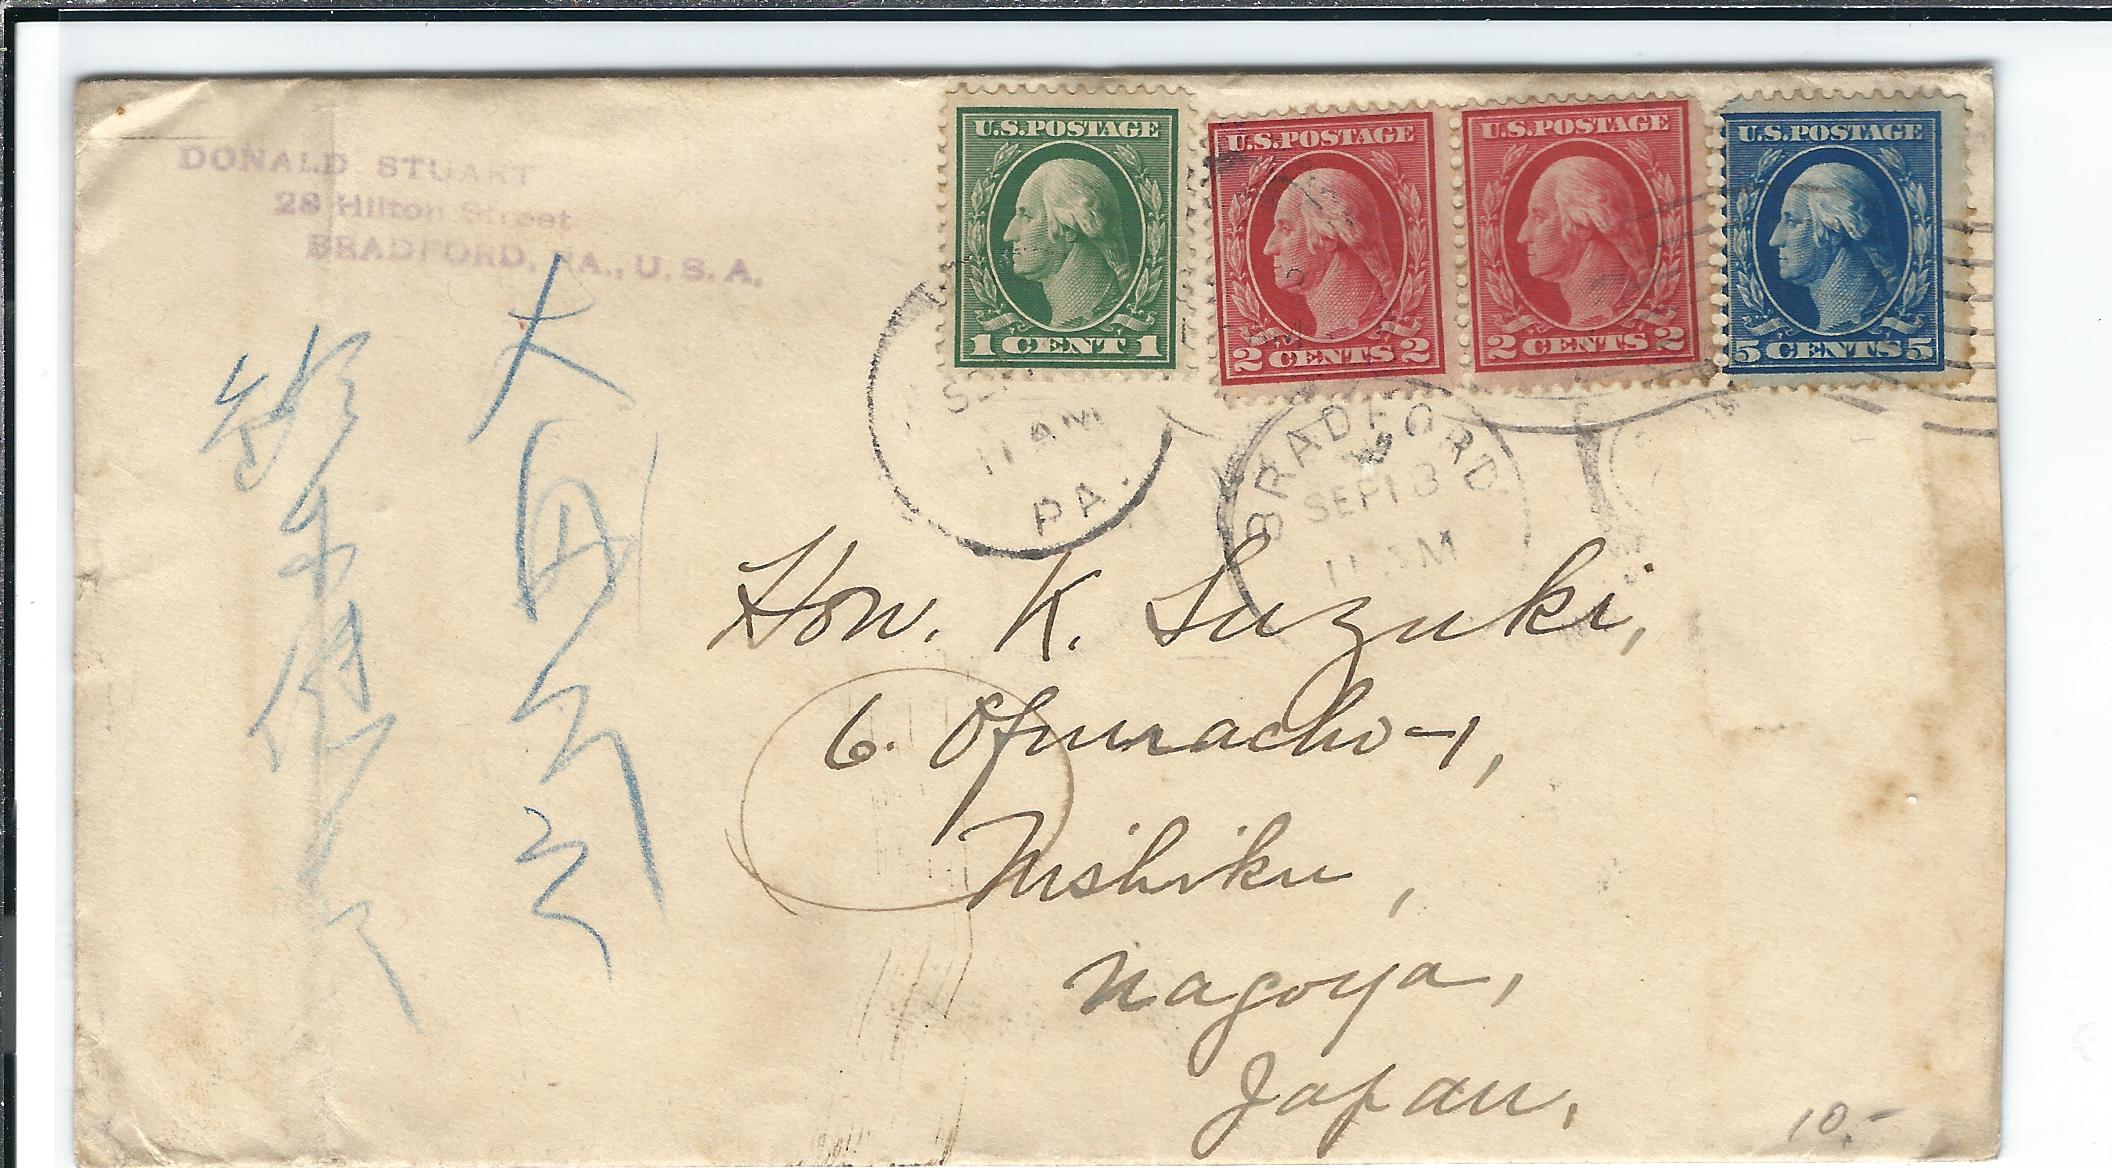 DONALD STUART
28 Hilton Street
BRADFORD, PA., U.S.A.
U.S.POSTAGE
1 CENT 1
U.S.POSTAGE
2 CENTS 2
U.S.POSTAGE
2 CENTS 2
U.S.POSTAGE
5 CENTS 5
11 AM
PA.
BRADFORD
SEP 13
11 AM
Hon. K. Suzuki,
6. Ofunacho-1,
Nishiku,
Nagoya,
Japan.
10.-